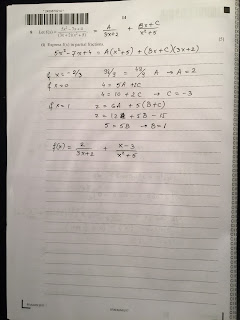 14
8 Let f(x) = (5x² - 7x + 4)/((3x + 2)(x² + 5)) = A/(3x+2) + (Bx+C)/(x²+5)
(i) Express f(x) in partial fractions.
5x² - 7x + 4 = A(x² + 5) + (Bx + C)(3x + 2)
if x = -2/3 98/9 = 49/9 A → A = 2
if x = 0 4 = 5A + 2C
4 = 10 + 2C → C = -3
if x = 1 2 = 6A + 5(B+C)
2 = 12 + 5B - 15
5 = 5B → B = 1
f(x) = 2/(3x+2) + (x-3)/(x²+5)